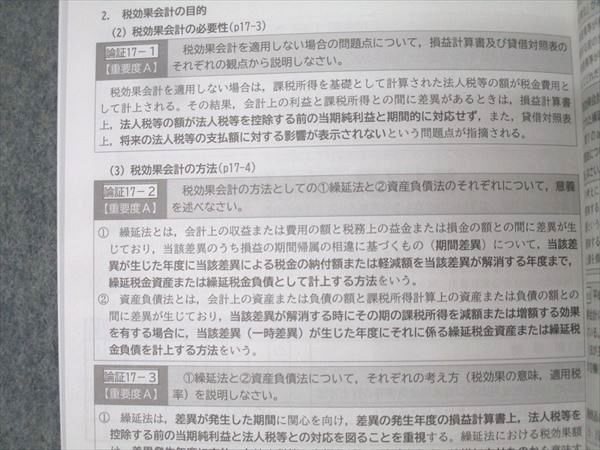 2. 税効果会計の目的
(2) 税効果会計の必要性(p17-3)
論証17－1
【重要度A】
税効果会計を適用しない場合の問題点について，損益計算書及び貸借対照表の
それぞれの観点から説明しなさい。
税効果会計を適用しない場合は，課税所得を基礎として計算された法人税等の額が税金費用と
して計上される。その結果，会計上の利益と課税所得との間に差異があるときは，損益計算書
上，法人税等の額が法人税等を控除する前の当期純利益と期間的に対応せず，また，貸借対照表
上，将来の法人税等の支払額に対する影響が表示されないという問題点が指摘される。
(3) 税効果会計の方法(p17-4)
論証17－2
【重要度A】
税効果会計の方法としての①繰延法と②資産負債法のそれぞれについて，意義
を述べなさい。
① 繰延法とは，会計上の収益または費用の額と税務上の益金または損金の額との間に差異が生
じており，当該差異のうち損益の期間帰属の相違に基づくもの（期間差異）について，当該差
異が生じた年度に当該差異による税金の納付額または軽減額を当該差異が解消する年度まで，
繰延税金資産または繰延税金負債として計上する方法をいう。
② 資産負債法とは，会計上の資産または負債の額と課税所得計算上の資産または負債の額との
間に差異が生じており，当該差異が解消する時にその期の課税所得を減額または増額する効果
を有する場合に，当該差異（一時差異）が生じた年度にそれに係る繰延税金資産または繰延税
金負債を計上する方法をいう。
論証17－3
【重要度A】
①繰延法と②資産負債法について，それぞれの考え方（税効果の意味，適用税
率）を説明しなさい。
① 繰延法は，差異が発生した期間に関心を向け，差異の発生年度の損益計算書上，法人税等を
控除する前の当期純利益と法人税等との対応を図ることを重視する。繰延法における税効果額